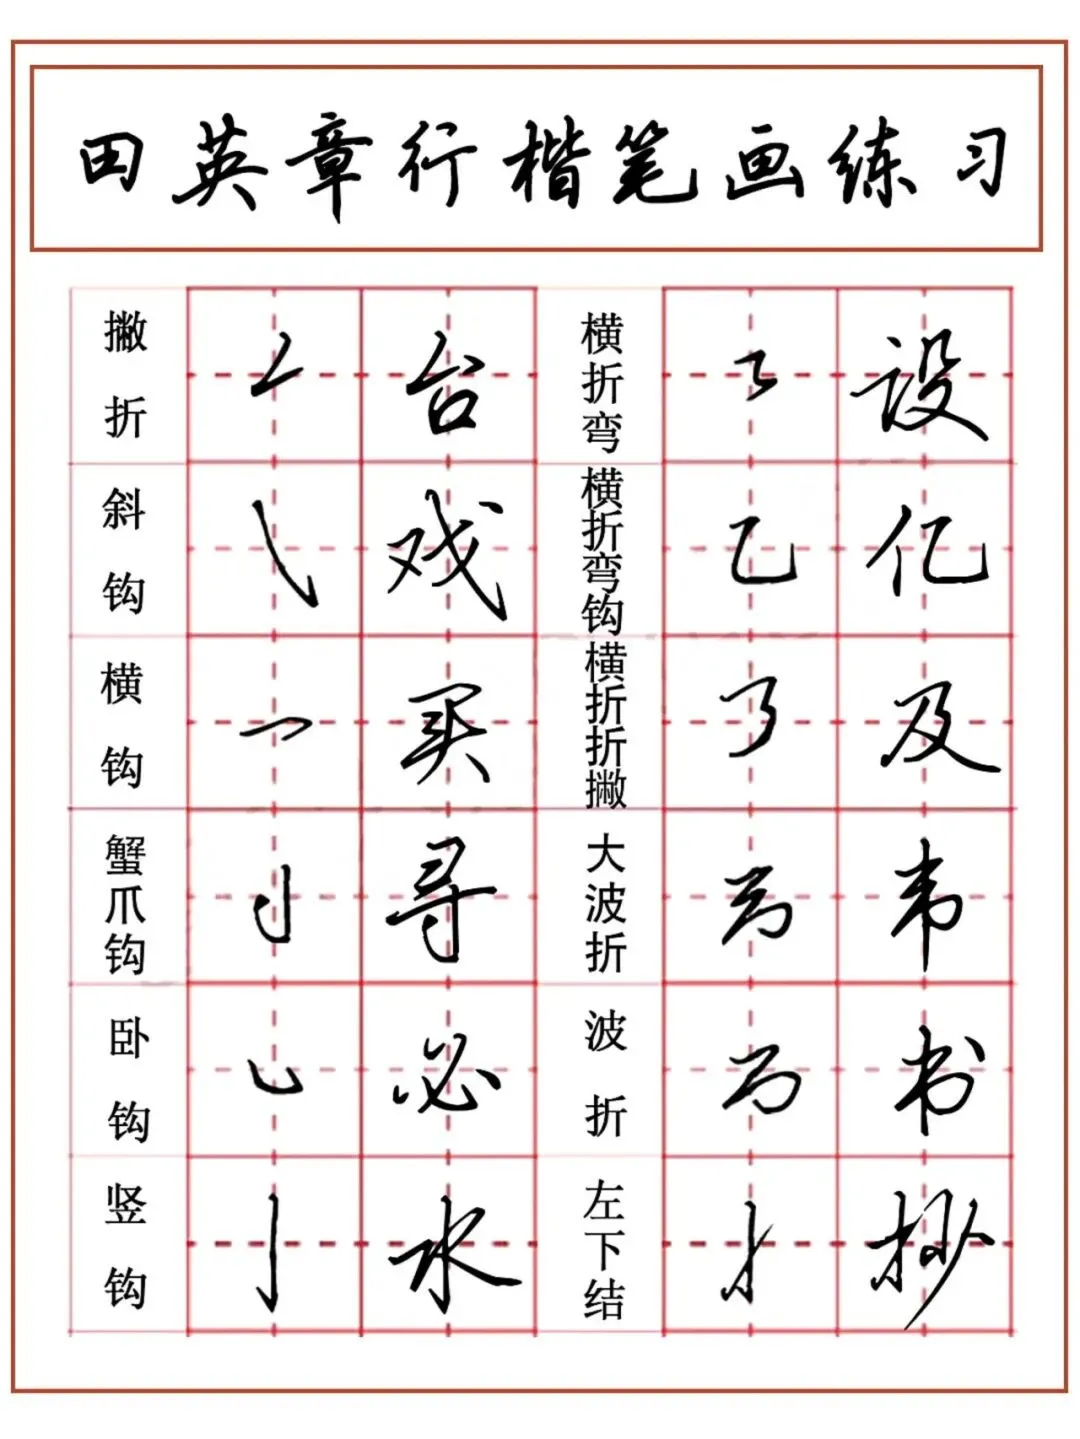 田英章行楷笔画练习
撇折 台 横折弯 设
斜钩 戏 横折弯钩 亿
横钩 买 横折折撇 及
蟹爪钩 寻 大波折 韦
卧钩 必 波折 书
竖钩 水 左下结 抄